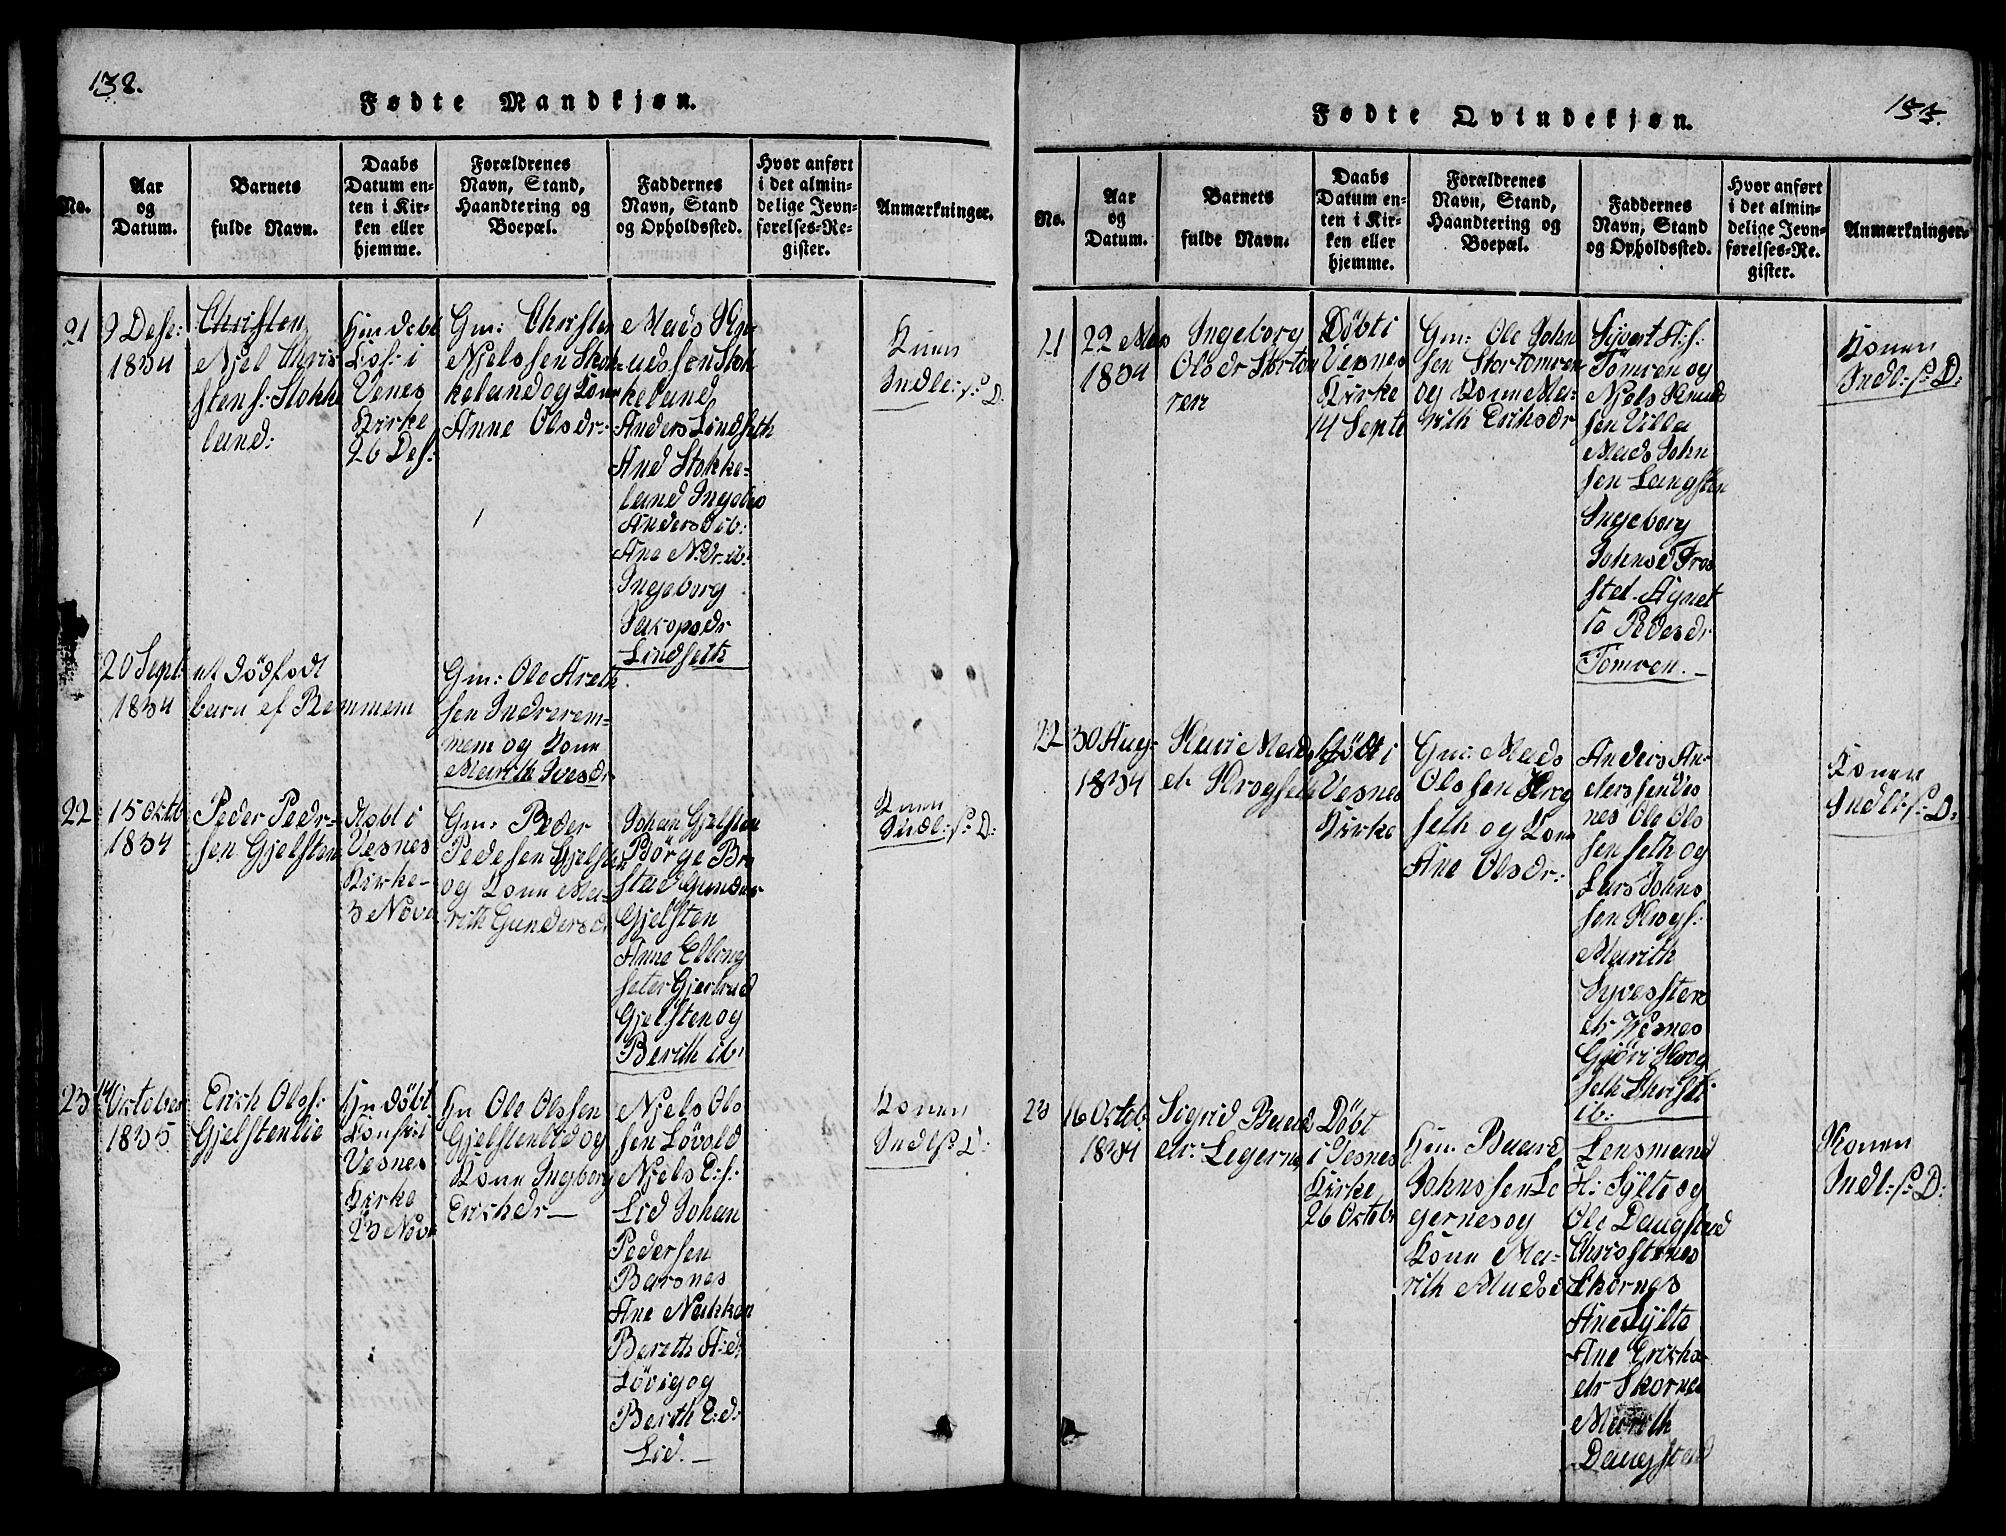 132.
Fødte Mandkjøn.
No.
Aar
og
Datum.
Barnets
fulde Navn.
Daabs
Datum en-
ten i Kir-
ken eller
hjemme.
Forældrenes
Navn, Stand,
Haandtering og
Boepæl.
Faddernes
Navn, Stand
og Opholdssted.
Hvor anført
i det almin-
delige Jevn-
førelses-Re-
gister.
Anmærkninger.
21
9 Dese:
1834
Christen
Niel Chris
stens: Stokke
land:
Hm døbt
Kof: i
Venes
Kirke
26 Des:
Gm: Christen
Nielssen Stok-
keland og Kone
Anne Olsdr:
Mads Knu
udssen Stok
keland
Anders Lindseth
And Stokke-
land Ingebor
Anders d ib:
Ane N:dr: ib:
Ingeborg
Jakopsdr
Lindseth
Konen
Indl: s: D.
20 Sept
1834
et dödfødt
barn af Remmem
Gm: Ole Areth
sen Indrerem-
mem og Kone
Marith Ivesdr
22
15 Oktb
1834
Peder Pedr-
sen Gjelsten
døbt i
Vesnes
Kirke-
3 Nove
Gm: Peder
Pedesen Gjelsten
og Kone Ma-
rith Gundersd
Johan Gjelsten
Börge Bra
stad Gunder
Gjelsten
Anne Elling
seter Gjertrud
Gjelsten og
Berith ib:
Konen
Indl: s: D:
23
14
Oktober
1835
Erich Ols:
Gjelstenlie
Hm døbt
Konfid
Vesnes
Kirke
23 Nov:
Hu Ole Olssen
Gjelstenlid og
Kone Ingborg
Erichdr
Niels Ols
sen Lövold
Niels E: s:
Lid Johan
Pedersen
Barsnes
Ane Nakken
Bereth A: d:
Lövig og
Berth E: d:
Lid.
Konen
Indl s: D:
133.
Fødte Qvindekjøn.
No.
Aar
og
Datum.
Barnets
fulde Navn.
Daabs
Datum en-
ten i Kir-
ken eller
hjemme.
Forældrenes
Navn, Stand,
Haandtering og
Boepæl.
Faddernes
Navn, Stand
og Opholdssted.
Hvor anført
i det almin-
delige Jevn-
førelses-Re-
gister.
Anmærkninger.
21
22 Mars
1834
Ingeborg
Olsdr Stortom
ren
Döbt i
Vesnes
Kirke
14 Septe
Gm: Ole John
sen Stortomren
og Kone Ma-
rith Eriksdr
Syvert A: s:
Tomren og
Niels Knuds
sen Villa
Mads John
sen Langsten
Ingeborg
Johnsd Fros
stad. Agnet
ta Pedesdr
Tomren.
Konen
Indl: s: D:
22
30 Aug-
1834
Kari Mads
dr Krogseth
döbt i
Vesnes
Kirke
Gm: Mads
Olssen Krog
seth og Kone
Ane Olsdr:
Anders An-
derssen Ves
nes Ole Ols
sen Seth og
Lars Johns
sen Krogs:
Marith
Syvesters
dr Vesnes
Gjöri Krog
seth Thorsti
ib:
Konen
Indl: s: D:
23
16 Octob
1834
Sigrid Baards
dr: Legernes
Döbt
i Vesnes
Kirke
26 Oktob
Hm: Baard
Johnssen Le
gernes og
Kone Ma-
rith Madsd
Lensmand
H: Sylte og
Ole Daugstad
Christenes
Skornes
Ane Sylte
Ane Eriks-
dr Skornes
Marith
Daugstad
Konen
Indl: s: D: